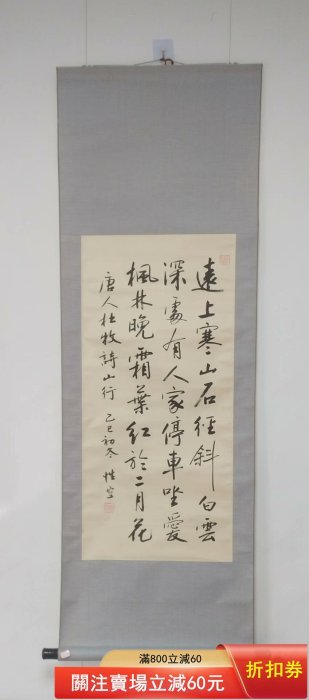 遠上寒山石径斜白雲
深處有人家停車坐愛
楓林晚霜葉紅於二月花
唐人杜牧詩山行 乙巳初冬 性空
滿800立減60
關注賣場立減60元
折扣券